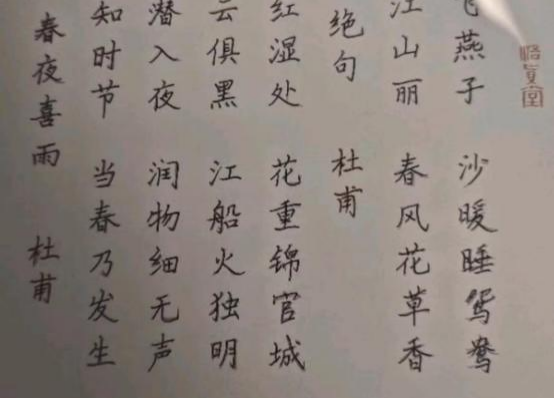 春夜喜雨 杜甫
知时节 当春乃发生
潜入夜 润物细无声
云俱黑 江船火独明
红湿处 花重锦官城
绝句 杜甫
江山丽 春风花草香
飞燕子 沙暖睡鸳鸯